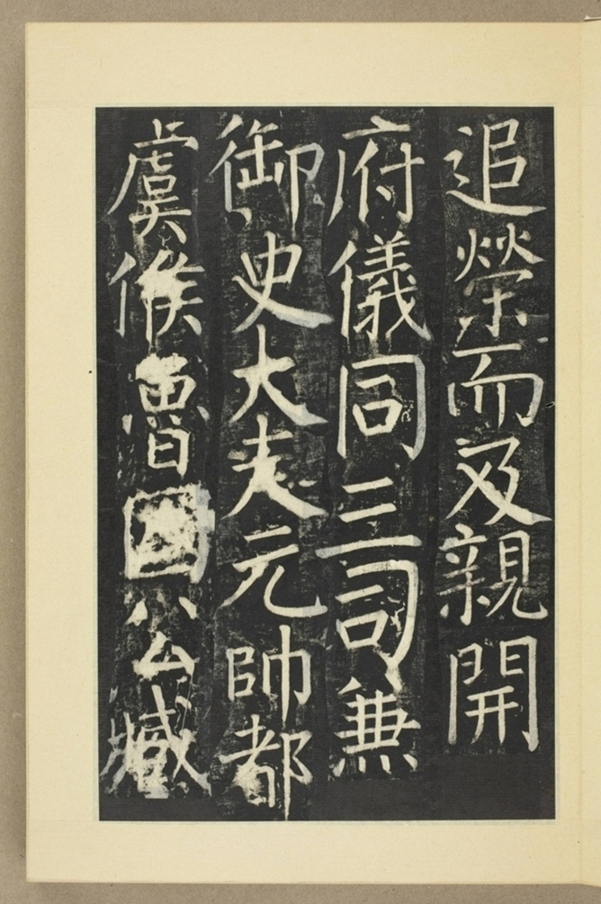 追榮而及親開
府儀同三司兼
御史大夫元帥都
虞候魯國公臧